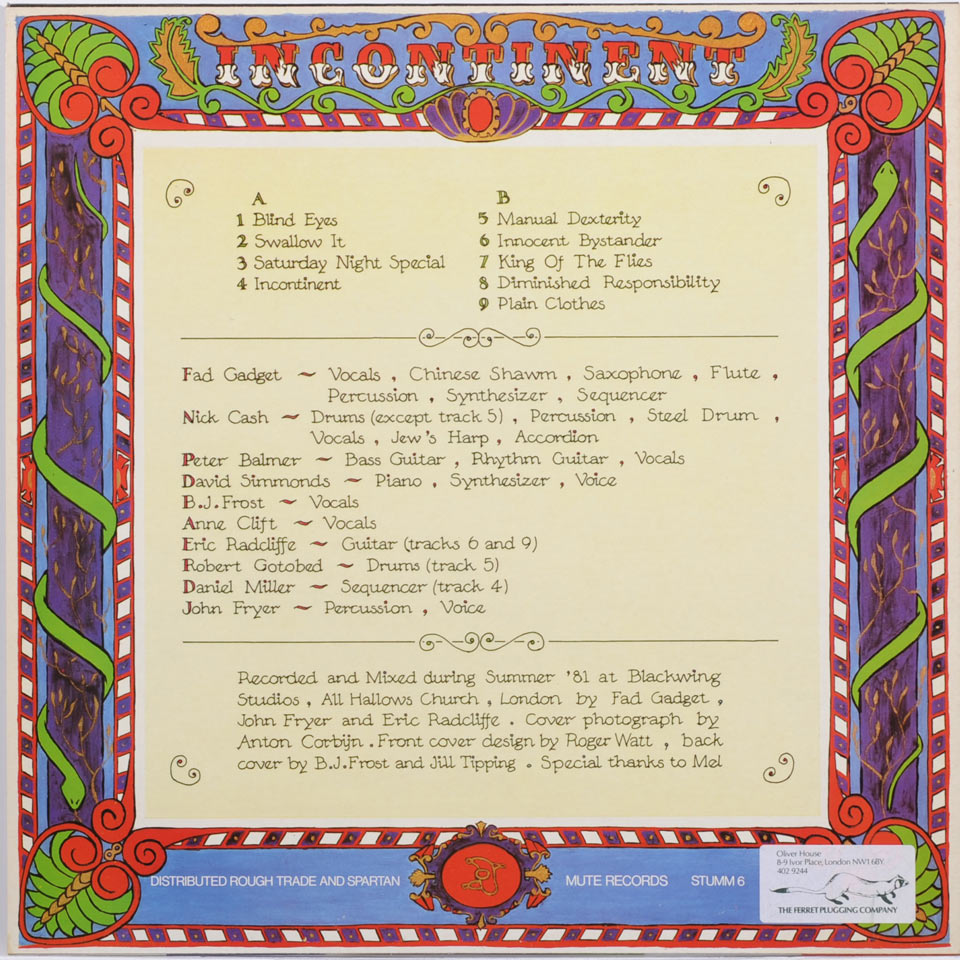 INCONTINENT
A
1 Blind Eyes
2 Swallow It
3 Saturday Night Special
4 Incontinent
B
5 Manual Dexterity
6 Innocent Bystander
7 King Of The Flies
8 Diminished Responsibility
9 Plain Clothes
Fad Gadget ~ Vocals , Chinese Shawm , Saxophone , Flute ,
Percussion , Synthesizer , Sequencer
Nick Cash ~ Drums (except track 5) , Percussion , Steel Drum ,
Vocals , Jew's Harp , Accordion
Peter Balmer ~ Bass Guitar , Rhythm Guitar , Vocals
David Simmonds ~ Piano , Synthesizer , Voice
B.J.Frost ~ Vocals
Anne Clift ~ Vocals
Eric Radcliffe ~ Guitar (tracks 6 and 9)
Robert Gotobed ~ Drums (track 5)
Daniel Miller ~ Sequencer (track 4)
John Fryer ~ Percussion , Voice
Recorded and Mixed during Summer '81 at Blackwing
Studios , All Hallows Church , London by Fad Gadget ,
John Fryer and Eric Radcliffe . Cover photograph by
Anton Corbijn . Front cover design by Roger Watt , back
cover by B.J.Frost and Jill Tipping . Special thanks to Mel
DISTRIBUTED ROUGH TRADE AND SPARTAN
MUTE RECORDS STUMM 6
Oliver House
8-9 Ivor Place, London NW1 6BY.
402 9244
THE FERRET PLUGGING COMPANY